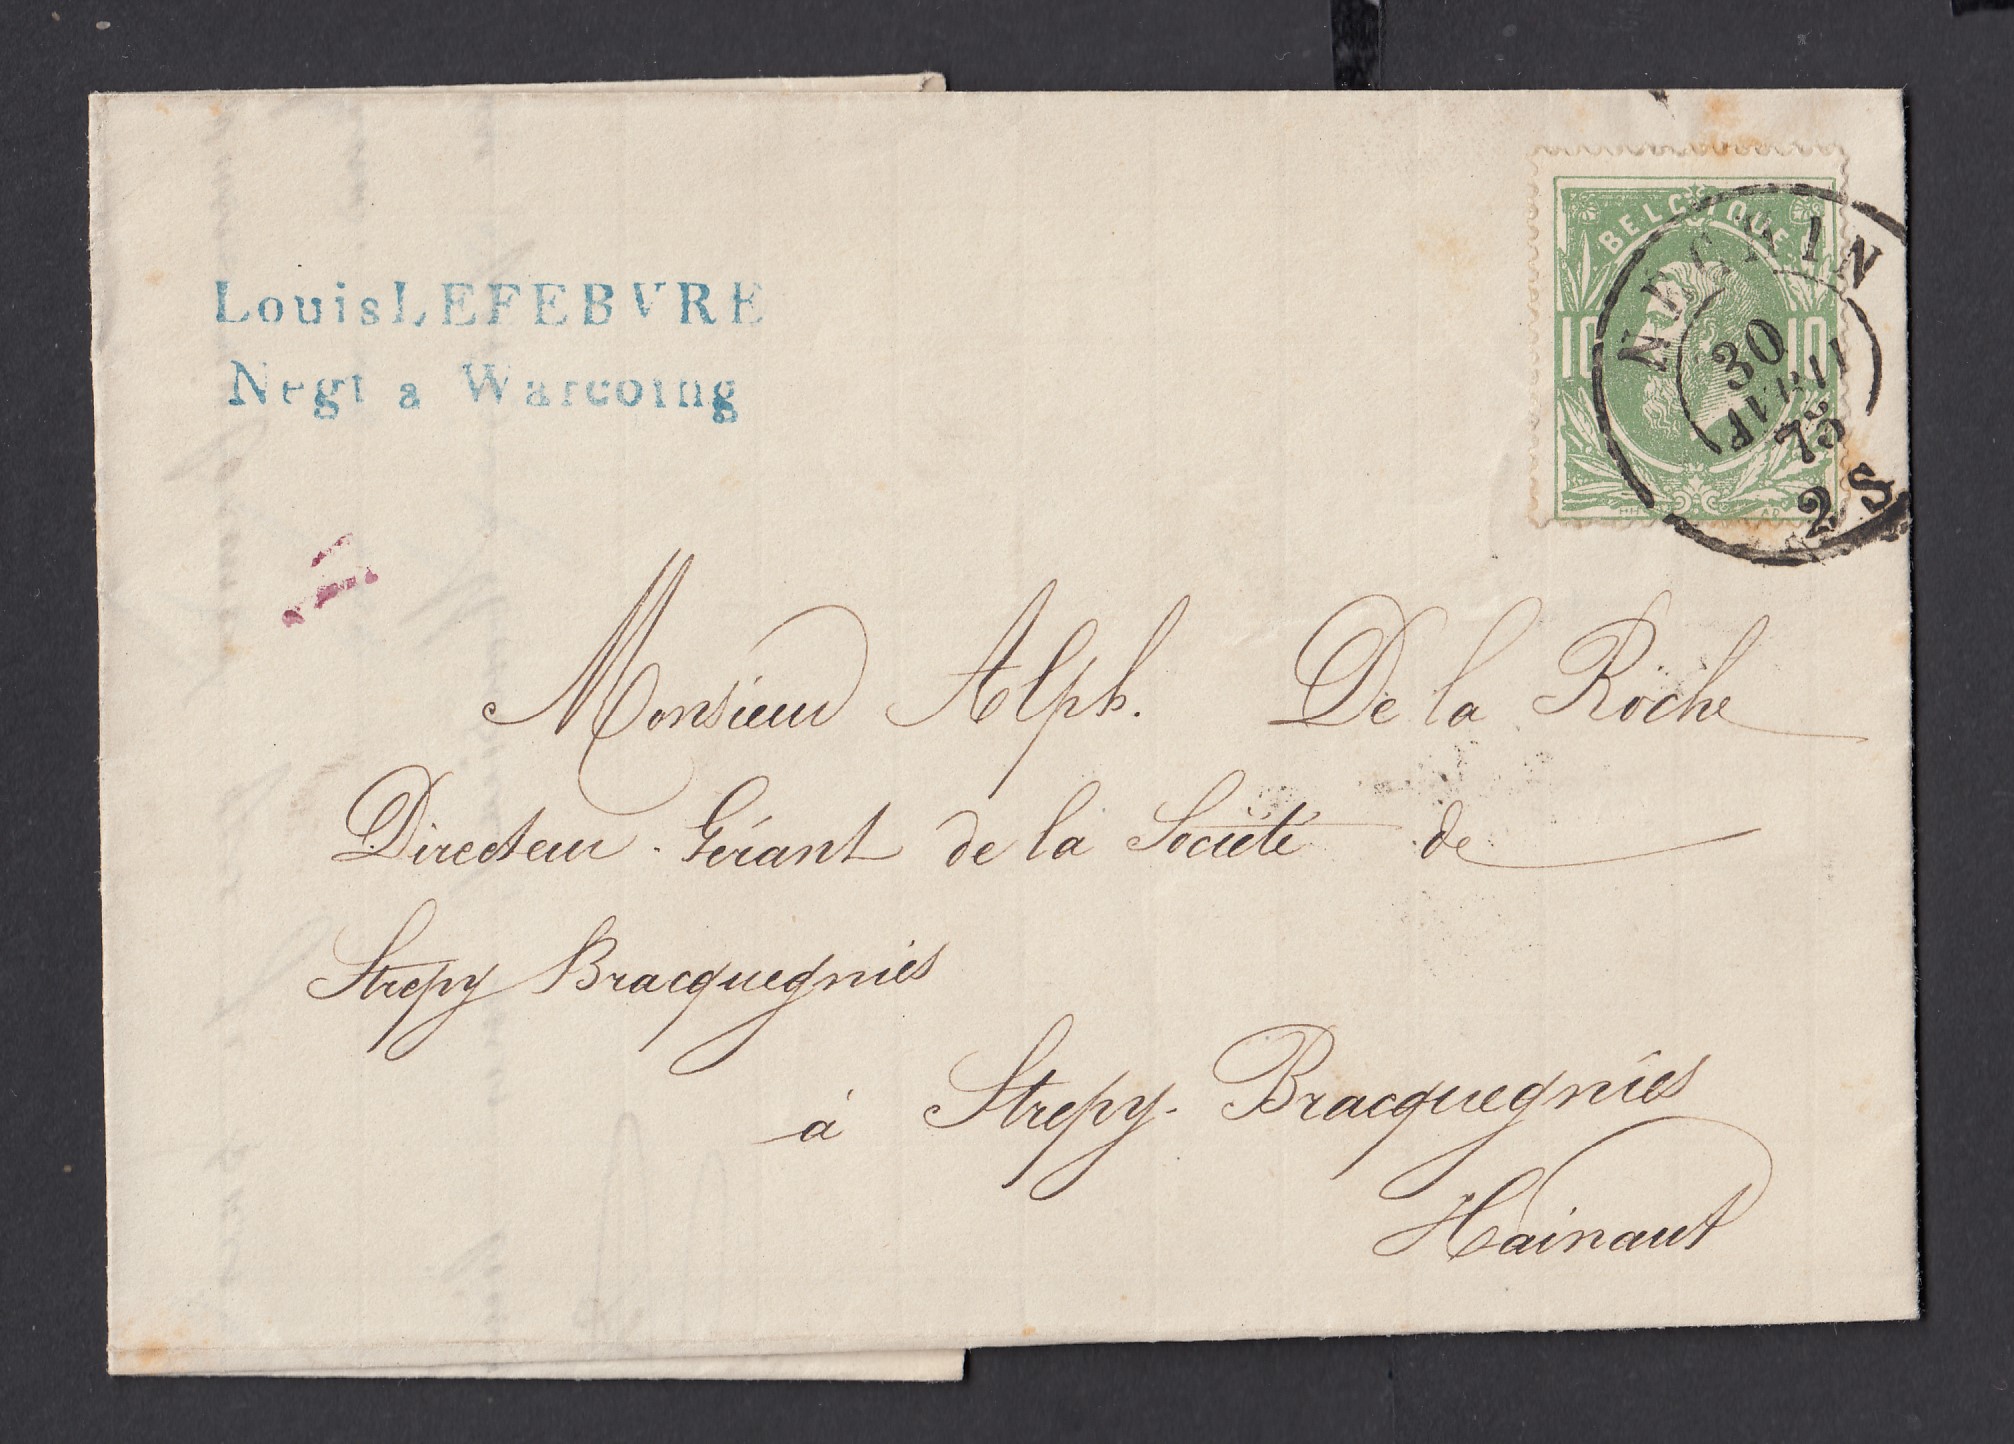 Louis LEFEBVRE
Negt a Warcoing
BELGIQUE
10 10
NECHIN
30
AVRIL
75
2 S
Monsieur Alph. De la Roche
Directeur-Gérant de la Société de
Strepy Bracquegnies
à Strepy-Bracquegnies
Hainaut